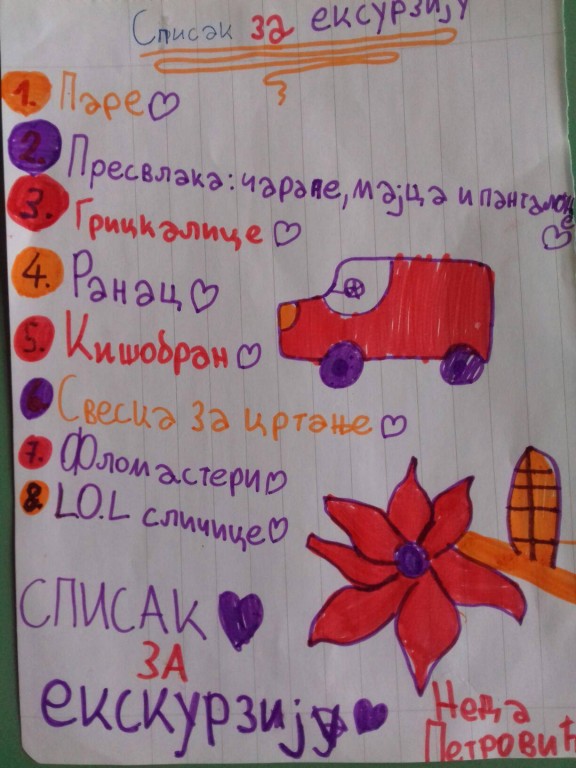 Списак за екурзију
1. Паре
2. Пресвлака: чарапе, мајца и панталоце
3. Грицкалице
4. Ранац
5. Кишобран
6. Свеска за цртање
7. Фломастери
8. LO.L сличице
СПИСАК
ЗА
екскурзију
Неда
Петровић